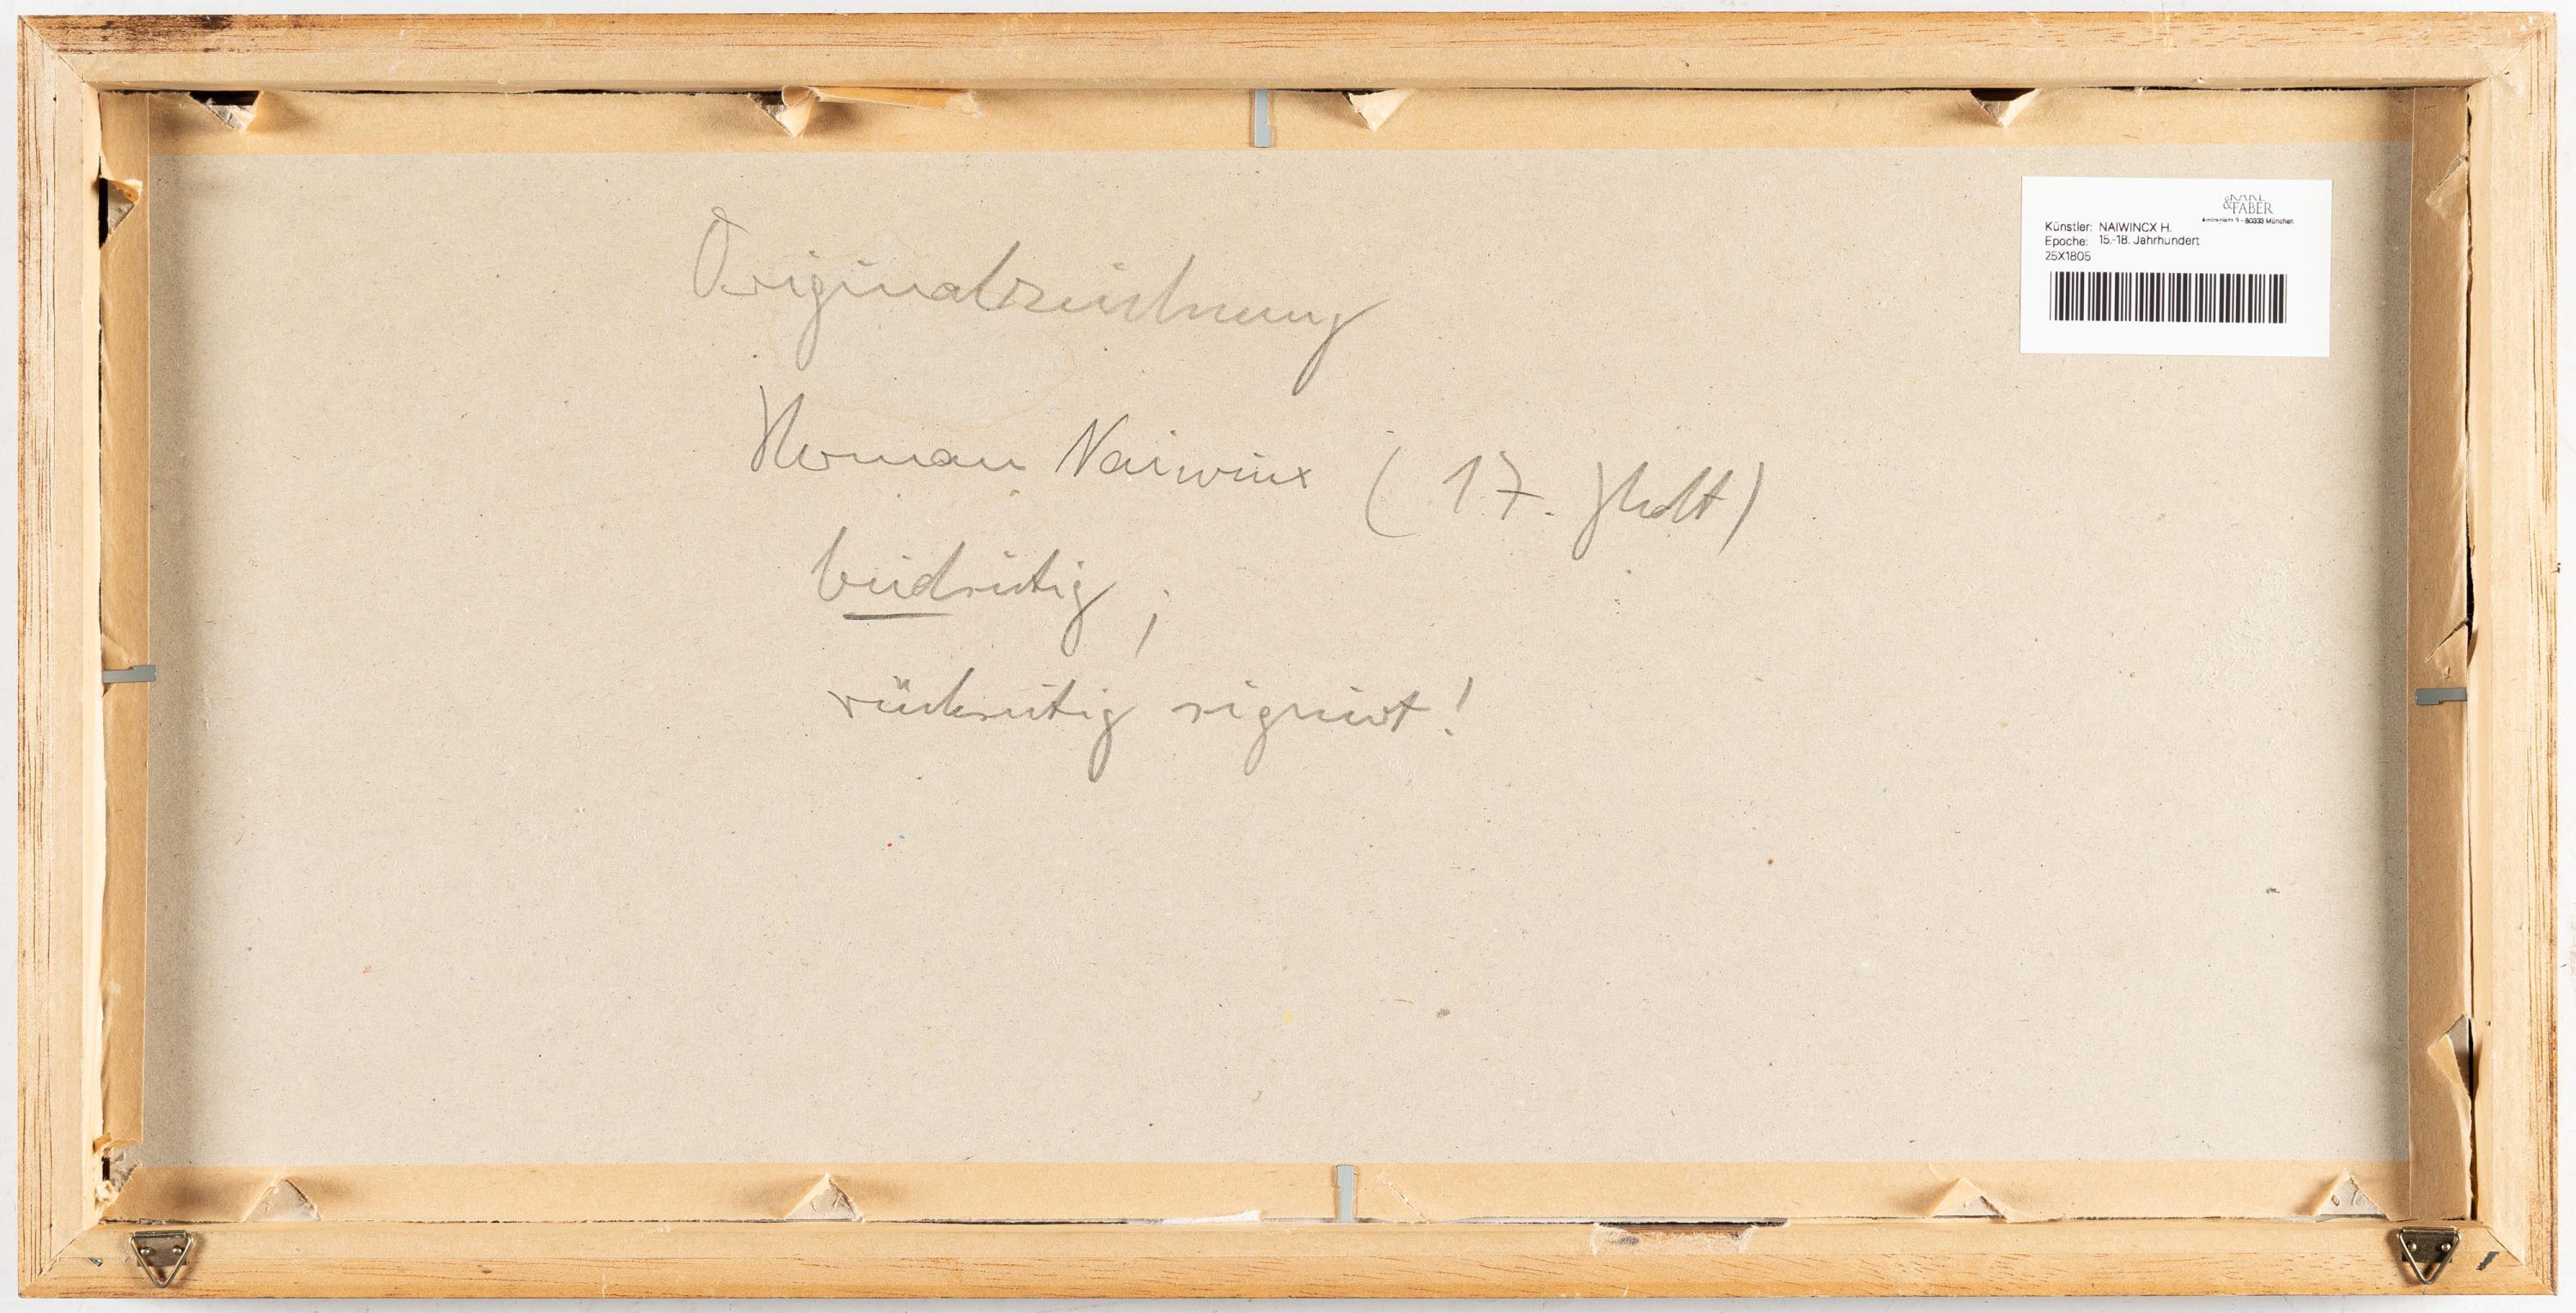 Originalzeichnung
Herman Naiwinx (17. Jhdt)
beidseitig;
rückseitig signiert!
KARL
&FABER
Amiraplatz 3 - 80333 München
Künstler: NAIWINCX H.
Epoche: 15.-18. Jahrhundert
25X1805